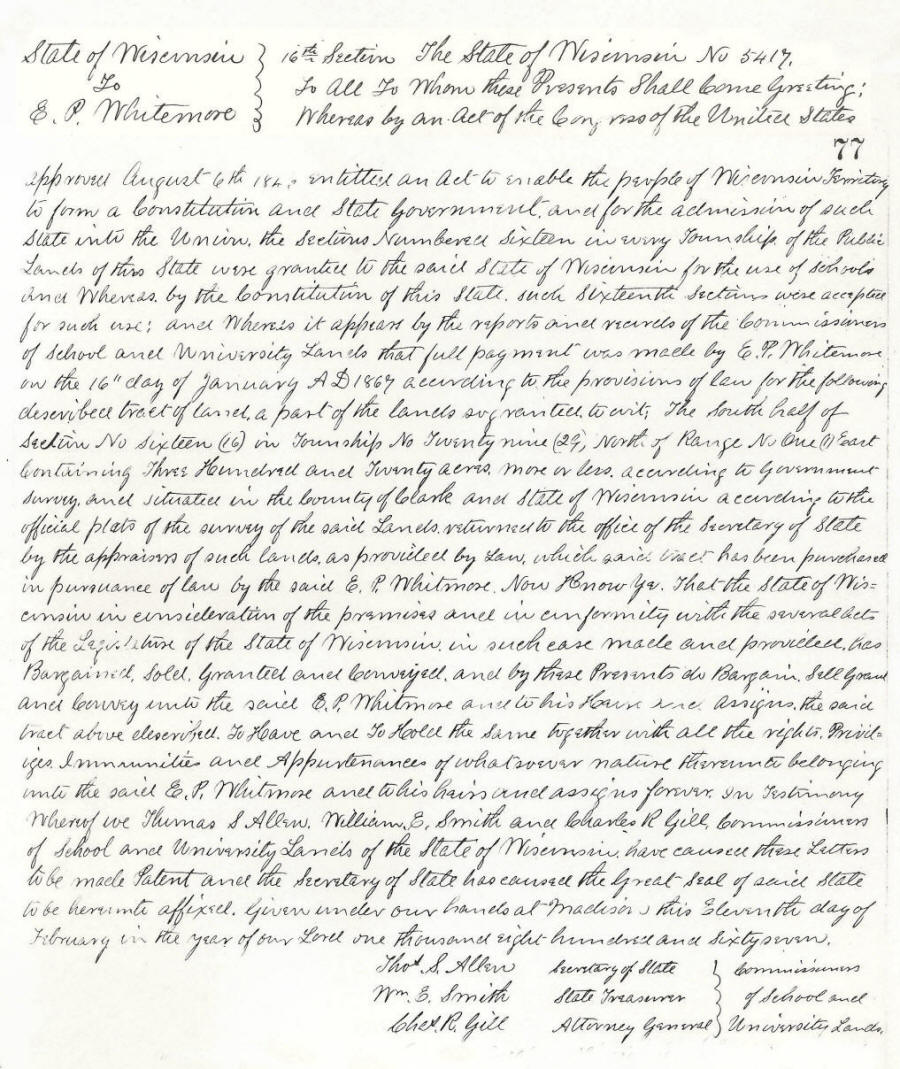 State of Wisconsin } 16th Section The State of Wisconsin No 5417.
To } To All To Whom these Presents Shall Come Greeting;
E. P. Whitemore } Whereas by an Act of the Congress of the United States
77
approved August 6th 184 entitled an Act to enable the people of Wisconsin Territory
to form a Constitution and State Government, and for the admission of such
State into the Union, the Sections Numbered Sixteen in every Township of the Public
Lands of this State were granted to the said State of Wisconsin for the use of Schools
And Whereas, by the Constitution of this State, such Sixteenth Sections were accepted
for such use; and Whereas it appears by the reports and records of the Commissioners
of School and University Lands that full payment was made by E. P. Whitemore
on the 16" day of January A D 1867 according to the provisions of law for the following
described tract of land, a part of the lands so granted, to wit; The South half of
Section No Sixteen (16) in Township No Twenty nine (29) North of Range No One (1) East
Containing Three Hundred and Twenty acres, more or less, according to Government
Survey, and situated in the County of Clark and State of Wisconsin according to the
official plats of the survey of the said Lands, returned to the office of the Secretary of State
by the appraisers of such lands, as provided by Law, which said tract has been purchased
in pursuance of law by the said E. P. Whitmore. Now Know Ye. That the State of Wis=
consin in consideration of the premises and in conformity with the several acts
of the Legislature of the State of Wisconsin, in such case made and provided, has
Bargained, Sold, Granted and Conveyed, and by these Presents do Bargain, Sell Grant
and Convey unto the said E. P. Whitmore and to his Heirs and Assigns, the said
tract above described. To Have and To Hold the Same together with all the rights, Privil=
iges, Immunities and Appurtenances of whatsoever nature thereunto belonging
unto the said E. P. Whitmore and to his heirs and assigns forever. In Testimony
Whereof we Thomas S Allen, William E. Smith and Charles R Gill, Commissioners
of School and University Lands of the State of Wisconsin, have caused these Letters
to be made Patent and the Secretary of State has caused the Great Seal of said State
to be hereunto affixed. Given under our hands at Madison, this Eleventh day of
February in the year of our Lord one thousand eight hundred and Sixty seven.
Thos. S. Allen Secretary of State } Commissioners
Wm. E. Smith State Treasurer } of School and
Chas. R. Gill Attorney General } University Lands.